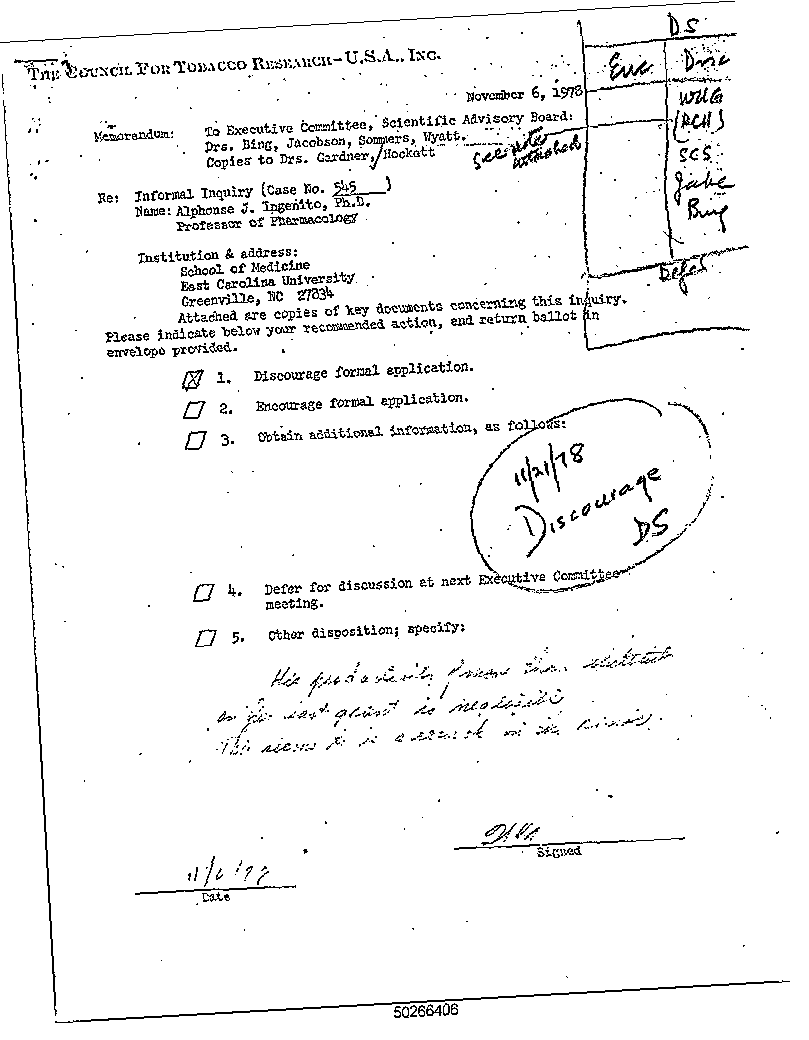 DS
THE COUNCIL FOR TOBACCO RESEARCH-U.S.A., INC.
Enc Disc
November 6, 1978
WUG
(RCH)
SCS
Jake
Bing
Defer
Memorandum: To Executive Committee, Scientific Advisory Board:
Drs. Bing, Jacobson, Sommers, Wyatt.
Copies to Drs. Gardner, Hockett
See note attached
Re: Informal Inquiry (Case No. 545)
Name: Alphonse J. Ingenito, Ph.D.
Professor of Pharmacology
Institution & address:
School of Medicine
East Carolina University
Greenville, NC 27834
Attached are copies of key documents concerning this inquiry.
Please indicate below your recommended action, and return ballot in
envelope provided.
1. Discourage formal application.
2. Encourage formal application.
3. Obtain additional information, as follows:
11/21/78
Discourage
DS
4. Defer for discussion at next Executive Committee
meeting.
5. Other disposition; specify:
His productivity
last grant is negligible
Signed
11/6/78
Date
50266406